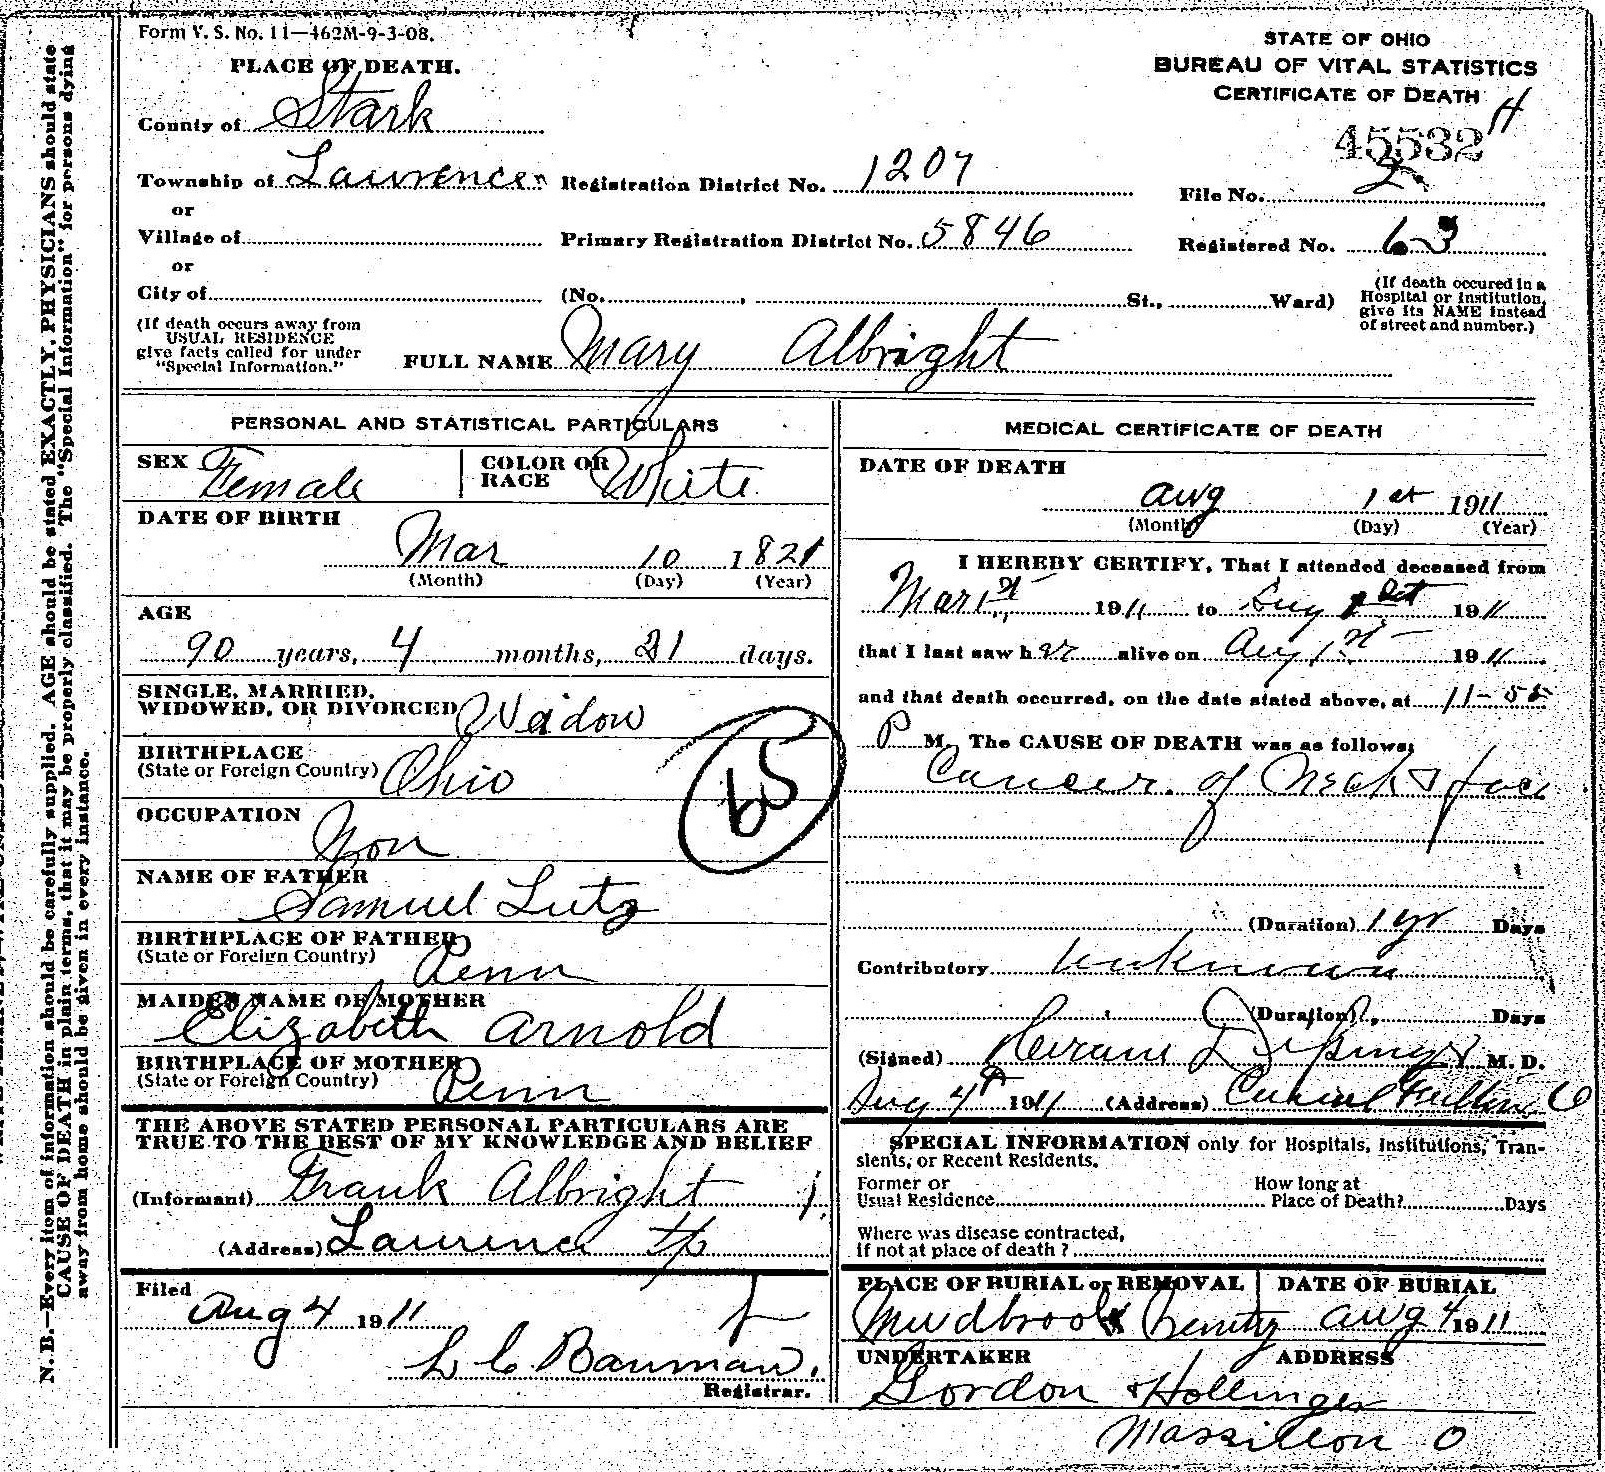 Form V. S. No. 11—462M-9-3-08.
PLACE OF DEATH.
STATE OF OHIO
BUREAU OF VITAL STATISTICS
CERTIFICATE OF DEATH
H
45532
County of Stark
Township of Lawrence Registration District No. 1207 File No. 2
or
Village of Primary Registration District No. 5846 Registered No. 63
or
City of (No. , St., Ward)
(If death occured in a
Hospital or Institution,
give its NAME instead
of street and number.)
(If death occurs away from
USUAL RESIDENCE
give facts called for under
"Special Information."
FULL NAME Mary Albright
PERSONAL AND STATISTICAL PARTICULARS
SEX Female COLOR OR RACE White
DATE OF BIRTH
Mar 10 1821
(Month) (Day) (Year)
AGE
90 years, 4 months, 21 days.
SINGLE, MARRIED,
WIDOWED, OR DIVORCED Widow
BIRTHPLACE
(State or Foreign Country) Ohio
65
OCCUPATION
Non
NAME OF FATHER
Samuel Lutz
BIRTHPLACE OF FATHER
(State or Foreign Country) Penn
MAIDEN NAME OF MOTHER
Elizabeth Arnold
BIRTHPLACE OF MOTHER
(State or Foreign Country) Penn
THE ABOVE STATED PERSONAL PARTICULARS ARE
TRUE TO THE BEST OF MY KNOWLEDGE AND BELIEF
(Informant) Frank Albright
(Address) Lawrence tp
Filed
Aug 4 1911
L C Bauman.
Registrar.
MEDICAL CERTIFICATE OF DEATH
DATE OF DEATH
Aug 1st 1911
(Month) (Day) (Year)
I HEREBY CERTIFY, That I attended deceased from
Mar 1st 1911 to Aug 1st 1911
that I last saw her alive on Aug 1st 1911
and that death occurred, on the date stated above, at 11-55
P M. The CAUSE OF DEATH was as follows:
Cancer. of Neck & face
(Duration) 1 yr Days
Contributory unknown
(Duration) Days
(Signed) Hiram M. D.
Aug 4th 1911 (Address) Canal Fulton O
SPECIAL INFORMATION only for Hospitals, Institutions, Tran-
sients, or Recent Residents.
Former or
Usual Residence
How long at
Place of Death? Days
Where was disease contracted,
if not at place of death?
PLACE OF BURIAL or REMOVAL DATE OF BURIAL
Mudbrook Aug 4 1911
UNDERTAKER ADDRESS
Gordon & Hollinger
Massillon O
N. B.—Every item of information should be carefully supplied. AGE should be stated EXACTLY, PHYSICIANS should state
CAUSE OF DEATH in plain terms, that it may be properly classified. The "Special Information" for persons dying
away from home should be given in every instance.